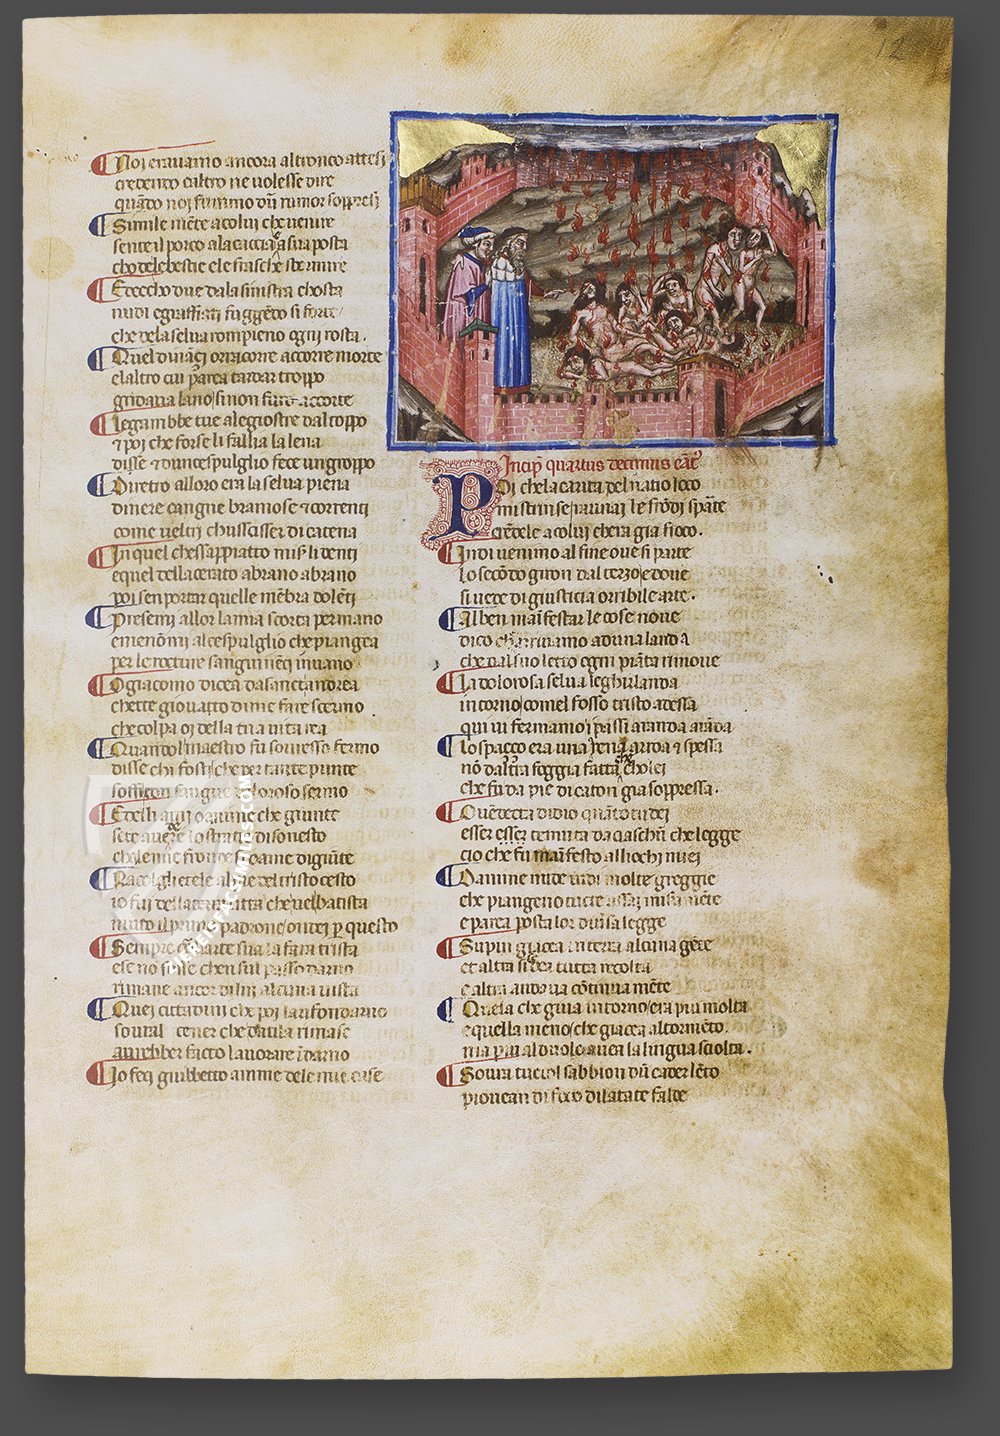 12
Noi eravamo ancora altronco attesi
credendo caltro ne volesse dire
quādo noi fummo dū rumor sopresi
Simile mēte acolui che venire
sente il porco ala caccia asua posta
chodelebestie ele frasche stormire
Edeccho due dala sinistra chosta
nudi egraffiati fuggēdo si forte
che dela selva rompieno ogni rosta.
Quel dināçi orracorre accorre morte
elaltro cui parea tardar troppo
gridava lano sinon furo accorte
legambbe tue alegiostre dal toppo
⁊ poi che forse li fallia la lena
disse ⁊ duncespuglio fece ungroppo
Diretro alloro era la selva piena
dinere cangne bramose ⁊ correnti
come veltri chusscisser di catena
In quel chessappiatto mis li denti
equel dellacerato abrano abrano
poi senportar quelle mēbra dolēti
Presemi allor lamia scorta per mano
emenōmi alcespulglio che piangea
per le rocture sanguinēti invano
O giacomo dicea dasanctandrea
chette giovatto dime fare scermo
che colpa oi della tua vita rea
Quandol maestro fu sovresso fermo
disse chi fosti che per tante punte
soffi con sangue doloroso sermo
Edelli a noi o anime che giunte
sete avedere lo stratio disonesto
chale mie fronde si dame digiūte
Racolglietele al pie del tristo cesto
io fui dellacitta che nel batista
muto il primo padrone ondei p̄ questo
Sempre cō larte sua la fara trista
ese nō fosse chen sul passo darno
rimane ancor dilui alcuna vista
Quei cittadini che poi larifondarno
sovral cener che datila rimase
avrebber facto lavorare īdarno
Io feci giubbetto amme dele mie case
Incip̄ quartus decimus cāt
Poi che la carita del natio loco
mi strinse raunai le frōdi sparte
e rēdele a colui chera gia fioco.
Indi venimo al fine ove si parte
lo secōdo giron dal terzo e dove
si vede di giusticia orribile arte.
Al ben māifestar le cose nove
dico charrivamo ad una landa
che dal suo lecto ogni piāta rimove
La dolorosa selva leghirlanda
intorno comel fosso tristo ad essa
qui vi fermamo i passi aranda arāda
lo spaççо era una rena arida ⁊ spessa
nō daltra foggia fatta che colei
che fu da pie di caton gia soppressa.
O vēdetta didio quāto tu dei
esser temuta da ciaschū che legge
cio che fu māifesto alliochi miei
Danime nude vidi molte greggie
che piangeno tucte assai miseramēte
e parea posta lor diversa legge
Supin giacea in terra alcuna gēte
et altra si sedea tutta recolta
e altra andava cōtinuamēte
Quela che giva intorno era piu molta
equella meno che giacea altormēto.
ma piu al duolo avea la lingua sciolta.
Sovra tuctol sabbion dū cader lēto
piovean di foco dilatate falde